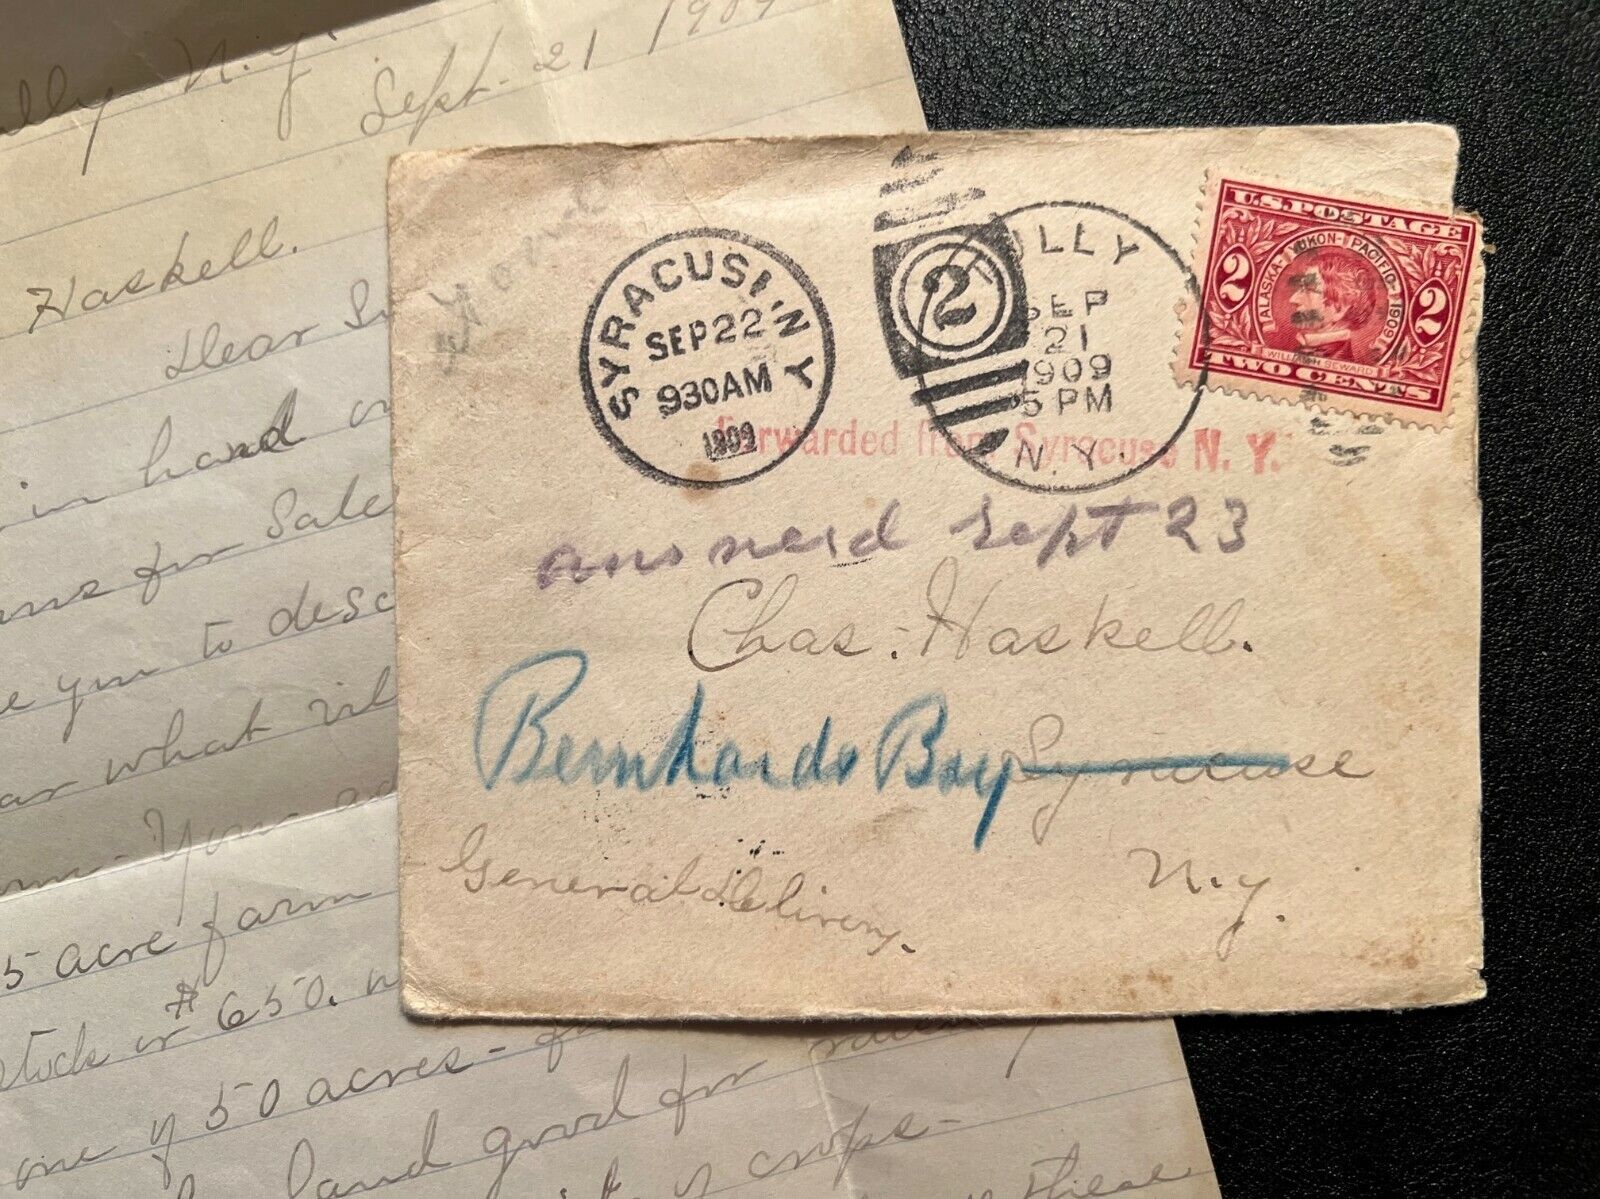 N.Y.
Sept. 21 1909
Haskell.
Dear
in hand
for Sale
you to desc
what
You
5 acre farm
Stock or $650.
one of 50 acres -
land good for
of crops -
these
SYRACUSE, N.Y.
SEP 22
930 AM
1909
2
TULLY
SEP
21
1909
5 PM
N.Y.
U.S. POSTAGE
ALASKA-YUKON-PACIFIC 1909
2 2
WILLIAM H. SEWARD
TWO CENTS
Forwarded from Syracuse N. Y.
answerd Sept 23
Chas. Haskell.
Bernhards Bay Syracuse
N.Y.
General Delivery.